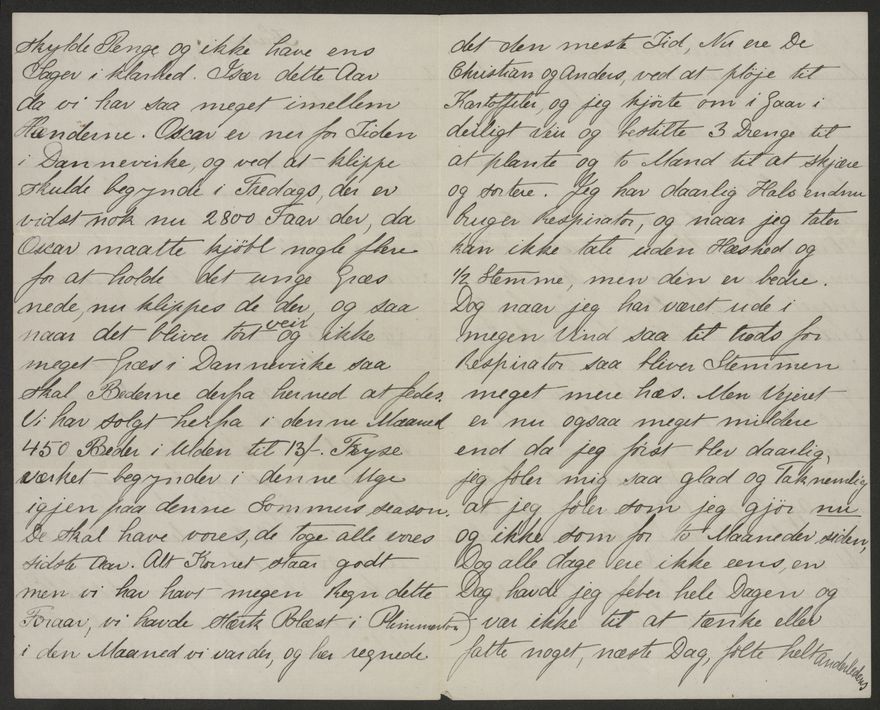 skylde Penge og ikke have ens
Sager i klarhed. Især dette Aar
da vi har saa meget imellem
Hænderne. Oscar er nu for Tiden
i Dannevirke, og ved at klippe
skulde begynde i Fredags, der er
vidst nok nu 2800 Faar der, da
Oscar maatte kjöbt nogle flere
for at holde det unge Græs
nede, nu klippes de der, og saa
naar det bliver tört veir og ikke
meget Græs i Dannevirke saa
skal Bederne derfra herned at fedes.
Vi har solgt herfra i denne Maaned
450 Beder i Ulden til 13/-. Fryse
værket begynder i denne Uge
igjen paa denne Sommers season.
De skal have vores, de toge alle vores
sidste Aar. Alt Kornet staar godt
men vi har havt megen Regn dette
Foraar, vi havde stærk Blæst i Plimmerton
i den Maaned vi var der, og her regnede
det den meste Tid, Nu ere De
Christian og Anders, ved at plöje til
Kartoffeler, og jeg kjörte om i Gaar i
deiligt Veir og bestilte 3 Drenge til
at plante og to Mænd til at skjære
og sortere. Jeg har daarlig Hals endnu
bruger Respirator, og naar jeg taler
kan ikke tale uden Hæshed og
1/2 Stemme, men den er bedre.
Dog naar jeg har været ude i
megen Vind saa til trods for
Respirator saa bliver Stemmen
meget mere hæs. Men Vejeret
er nu ogsaa meget mildere
end da jeg först blev daarlig,
jeg föler mig saa glad og Taknemlig
at jeg föler som jeg gjör nu
og ikke som for to Maaneder siden,
Dog alle dage ere ikke eens, en
Dag havde jeg feber hele Dagen og
var ikke til at tænke eller
fatte noget, næste Dag, fölte helt anderledens